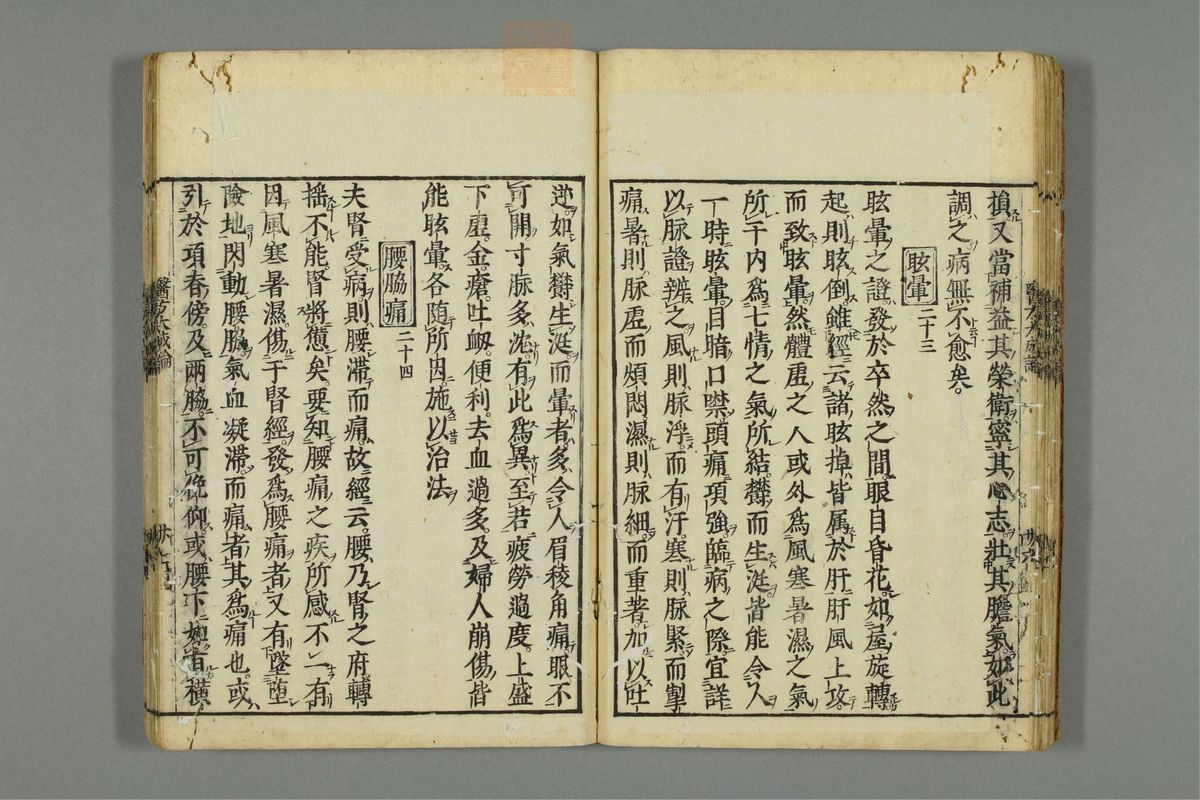 損又當補益其榮衛寧其心志壯其膽氣如此
調之病無不愈矣
眩暈二十三
眩暈之證發於卒然之間眼目昏花如屋旋轉
起則眩倒雖經云諸眩掉皆属於肝肝風上攻
而致眩暈然體虚之人或外爲風寒暑濕之氣
所干内爲七情之氣所結欝而生涎皆能令人
一時眩暈目暗口噤頭痛項強臨病之際宜詳
以脉證辨之風則脉浮而有汗寒則脉緊而掣
痛暑則脉虚而煩悶濕則脉細而重著加以吐
逆如氣欝生涎而暈者多令人眉稜角痛眼不
可開寸脉多沈有此爲異至若疲勞過度上盛
下虚金瘡吐衂便利去血過多及婦人崩傷皆
能眩暈各随所因施以治法
腰脇痛二十四
夫腎受病則腰滞而痛故經云腰乃腎之府轉
揺不能腎將憊矣要知腰痛之疾所感不一有
因風寒暑濕傷于腎經發爲腰痛者又有墜堕
險地閃動腰脇氣血凝滞而痛者其爲痛也或
引於項脊傍及兩脇不可俛仰或腰下如有横
醫方大成論